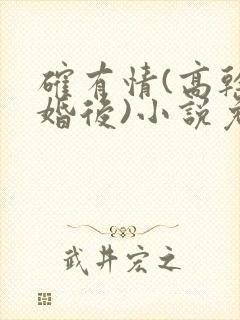 確有情(高幹
婚後)小說
武井宏之